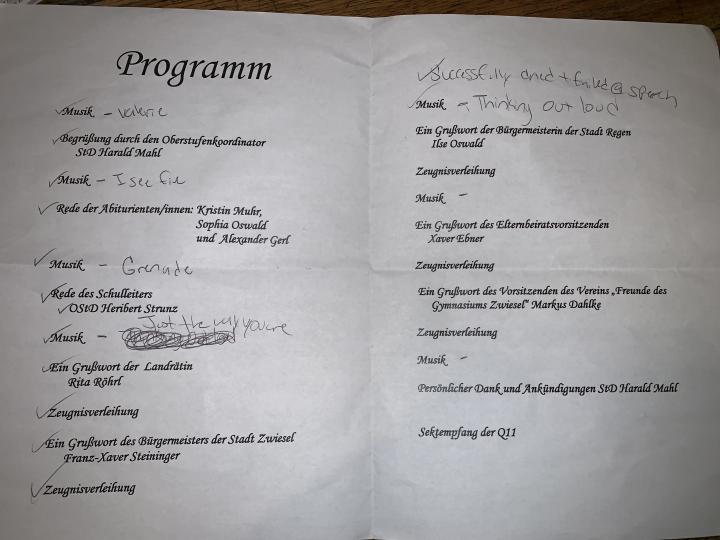 Programm
Musik - Valerie
Begrüßung durch den Oberstufenkoordinator
StD Harald Mahl
Musik - I see fire
Rede der Abiturienten/innen: Kristin Muhr,
Sophia Oswald
und Alexander Gerl
Musik - Grenade
Rede des Schulleiters
OStD Heribert Strunz
Just the way you are
Musik -
Ein Grußwort der Landrätin
Rita Röhrl
Zeugnisverleihung
Ein Grußwort des Bürgermeisters der Stadt Zwiesel
Franz-Xaver Steininger
Zeugnisverleihung
Successfully and + failed @ speech
Musik - Thinking out loud
Ein Grußwort der Bürgermeisterin der Stadt Regen
Ilse Oswald
Zeugnisverleihung
Musik -
Ein Grußwort des Elternbeiratsvorsitzenden
Xaver Ebner
Zeugnisverleihung
Ein Grußwort des Vorsitzenden des Vereins „Freunde des
Gymnasiums Zwiesel" Markus Dahlke
Zeugnisverleihung
Musik -
Persönlicher Dank und Ankündigungen StD Harald Mahl
Sektempfang der Q11